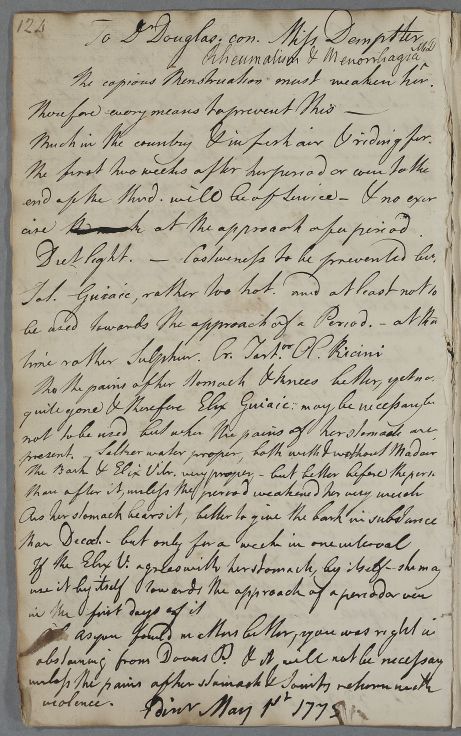 124
To Dr Douglas. con. Miss Dempster
Rheumatism & Menorrhagia
The copious Menstruation must weaken her.
Therefore every means to prevent this —
Much in the country & in fresh air & riding for
the first two weeks after her period or even to the
end of the third. will be of Service – & no exer
cise at the approach of a period.
Diet light. — Costiveness to be prevented by
Guiaic, rather too hot. and at least not to
be used towards the approach of a Period. – at that
time rather Sulphur. Cr. Tart. or Ol. Ricini
Tho the pains of her stomach & knees better, yet not
quite gone & therefore Elix Guiaic: may be necessary, be
not to be used but when the pains of her stomach are
present. – Seltzer water proper, both with & without Madeir
The Bark & Elix Vitr. very proper, – but better before the peri
than after it, unless the period weakened her very much
As her stomach bears it, better to give the bark in substance
than Decoct. – but only for a week in one interval
If the Elix V: agrees with her stomach, by itself – she may
use it by itself towards the approach of a period or even
in the first days of it
As you found matters better, you was right in
abstaining from Dovers P. & it will not be necessary
unless the pains of her stomach & Joints return with
violence.
May 1st 177